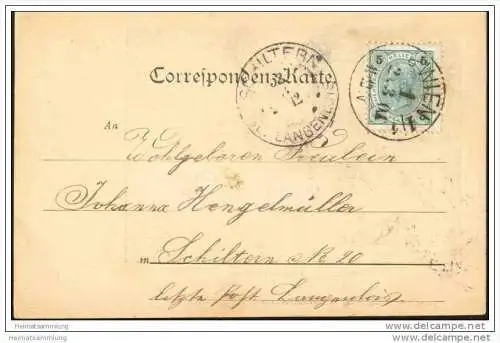 SCHILTERN
LANGENLOIS
WIEN
Correspondenz-Karte
An
Wohlgeboren Fräulein
Johanna Hengelmüller
in Schiltern No 20
letzte Post Langenlois
Heimatsammlung
Heimatsammlung.com
delcampe.net